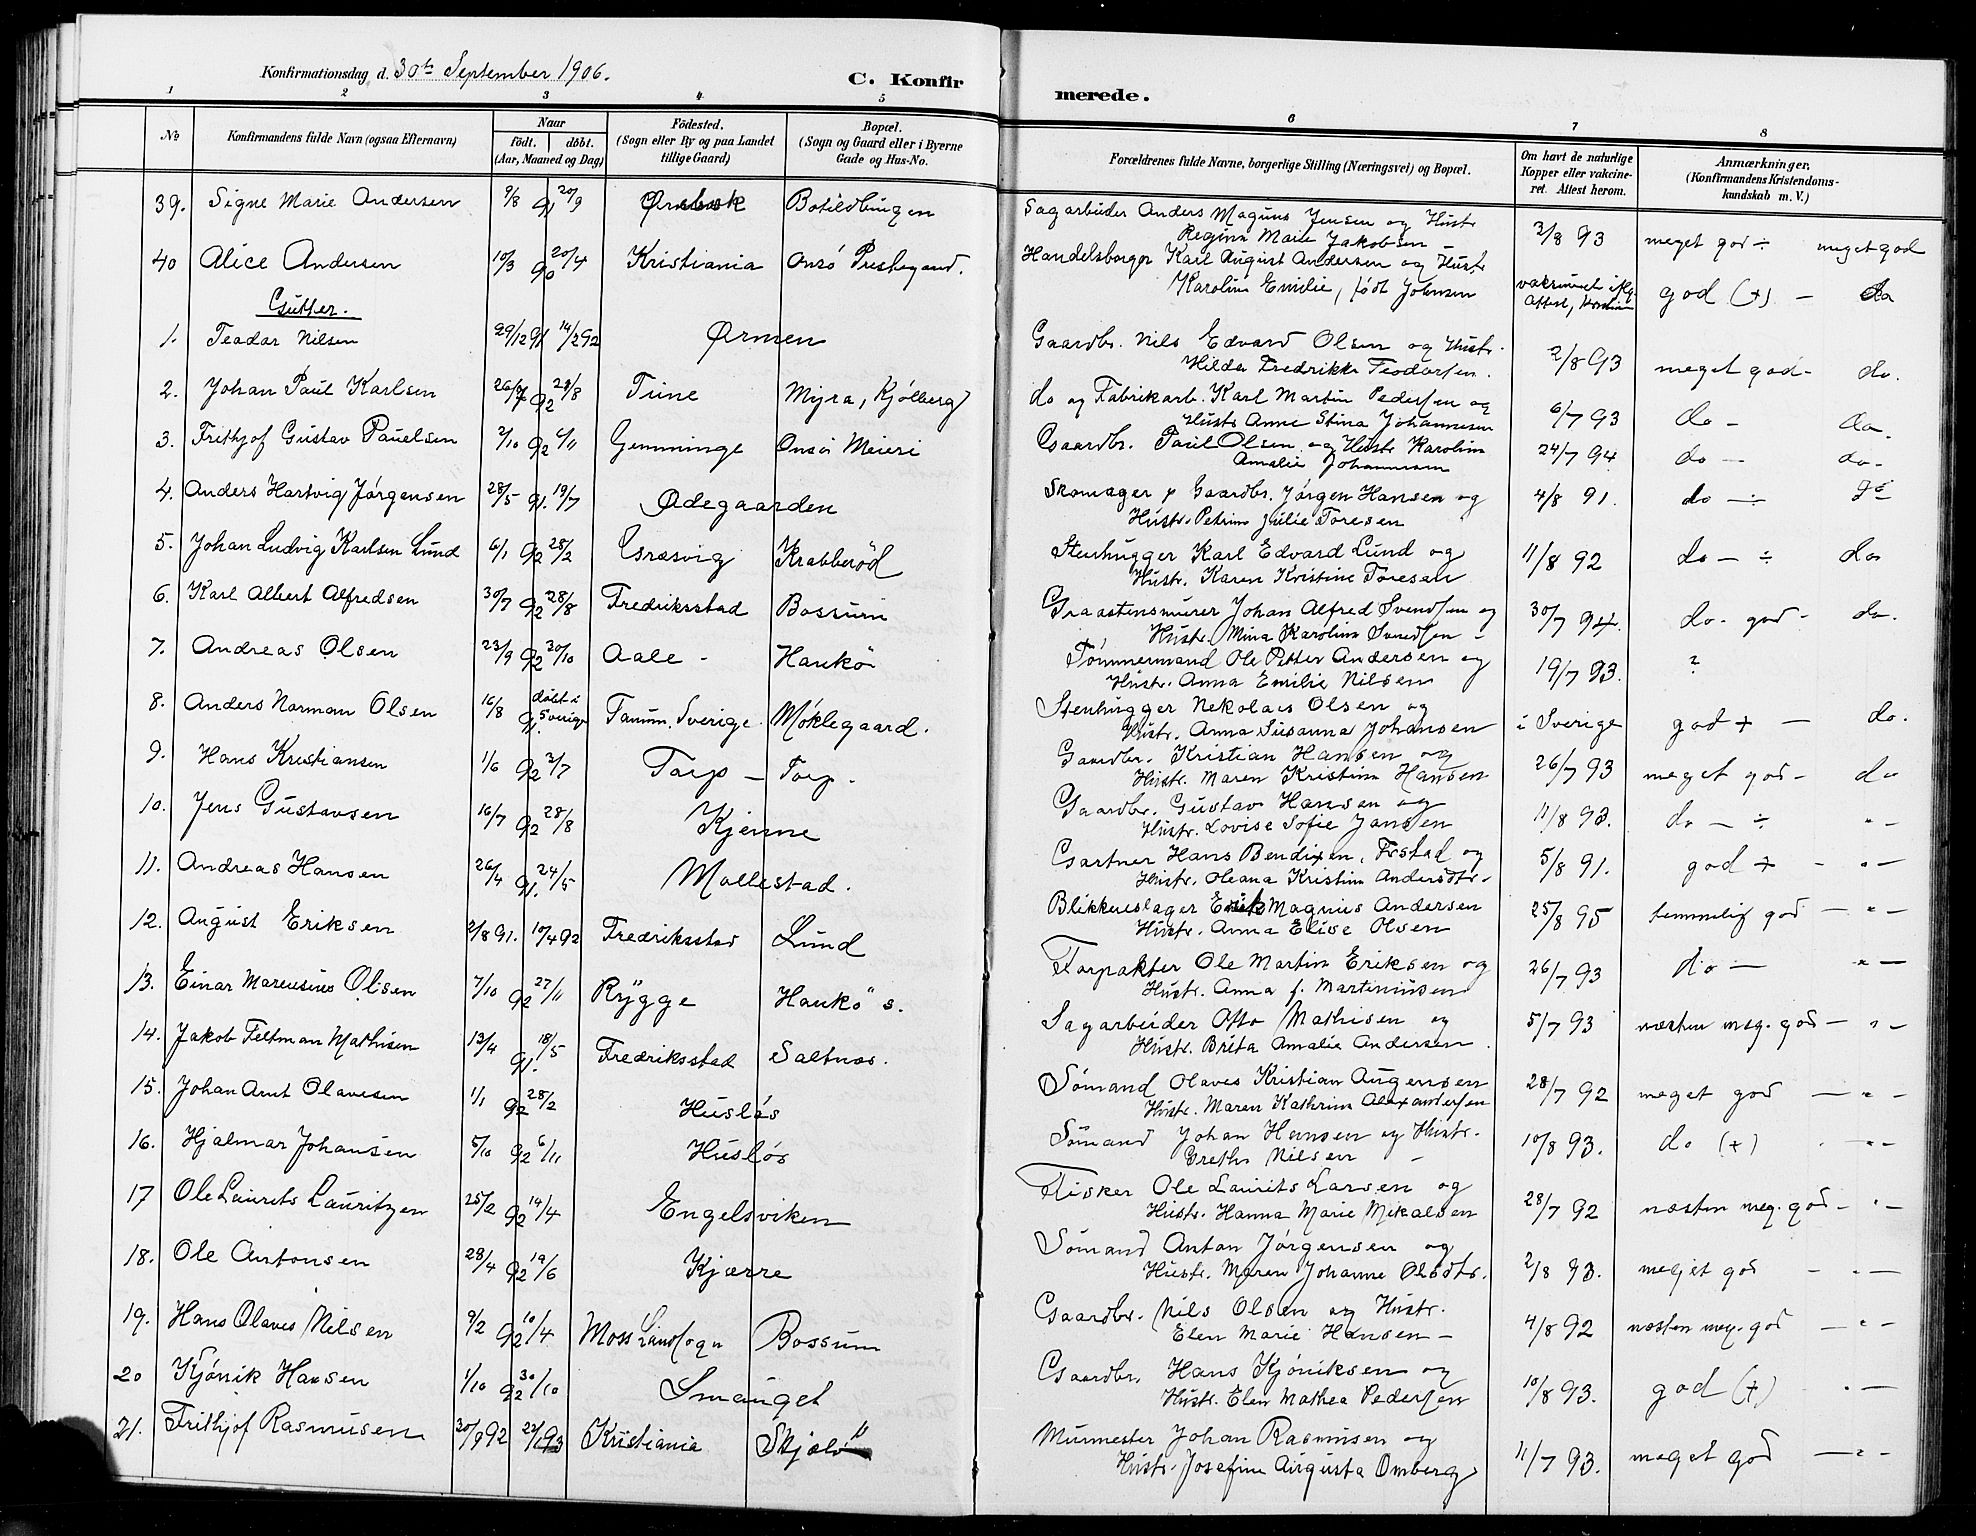 Konfirmationsdag d. 30te September 1906.
C. Konfirmerede.
1 2 3 4 5 6 7 8
No
Konfirmandens fulde Navn (ogsaa Efternavn)
Naar født. døbt. (Aar, Maaned og Dag)
Fødested. (Sogn eller By og paa Landet tillige Gaard)
Bopæl. (Sogn og Gaard eller i Byerne Gade og Hus-No.
Forældrenes fulde Navne, borgerlige Stilling (Næringsvei) og Bopæl.
Om havt de naturlige Kopper eller vakcineret. Attest herom.
Anmærkninger. (Konfirmandens Kristendomskundskab m. V.)
39. Signe Marie Andersen 9/8 91 20/9 Botildbingen Sagarbeider Anders Magnus Jensen og Hustr
Regina Marie Jakobsen – 3/8 93 meget god ÷ meget god
40 Alice Andersen 10/3 90 20/4 Kristiania Onsö Prestegaard. Handelsborger Karl August Andersen og Hustr
Karoline Emilie, født Johnsen god (+) – do
Gutter.
1. Teodor Nilsen 29/12 91 14/2 92 Ørmen Gaardbr. Nils Edvard Olsen og Hustr.
Hilda Fredrikke Teodorsen. 2/8 93 meget god – do.
2. Johan Paul Karlsen 26/7 92 28/8 Trine Myra, Kjølberg do og Fabrikarb. Karl Martin Pedersen og
Hustr Anne Stina Johannesen 6/7 93 do – do.
3. Frithjof Gustav Pauelsen 2/10 92 6/11 Gemminge Onsö Meieri Gaardbr. Paul Olsen og Hustr Karoline
Amalie Johannesen 24/7 94 do – do.
4. Anders Hartvig Jørgensen 28/5 91. 19/7 Ødegaarden Skomager & Gaardbr. Jørgen Hansen og
Hustr. Petrine Julie Toresen 4/8 91. do – ÷ do
5. Johan Ludvig Karlsen Lund 6/1 92 28/2 Græsvig Krabberød Stenhugger Karl Edvard Lund og
Hustr. Karen Kristine Toresen 11/8 92 do – ÷ do
6. Karl Albert Alfredsen 30/7 92 28/8 Fredriksstad Bossum Graastensmurer Johan Alfred Svendsen og
Hustr. Mina Karoline Svendsen – 30/7 94. do. god – do.
7. Andreas Olsen 23/9 92 30/10 Aale – Hankö Tömmermand Ole Petter Andersen og
Hustr. Anna Emilie Nilsen 19/7 93. ?
8. Anders Norman Olsen 16/8 91. döbt i Sverige Tanum. Sverige. Møklegaard. Stenhugger Nekolais Olsen og
Hustr. Anna Susanna Johansen i Sverige god + – do.
9. Hans Kristiansen 1/6 92 3/7 Torp – Torp. Gaardbr. Kristian Hansen og
Hustr. Maren Kristine Hansen 26/7 93 meget god – do
10. Jens Gustavsen 16/7 92 28/8 Kjenne Gaardbr. Gustav Hansen og
Hustr. Lovise Sofie Jansen 11/8 93. do – ÷ " –
11. Andreas Hansen 26/4 91. 24/5 Mallestad. Gartner Hans Bendixen, Frstad og
Hustr. Oleana Kristine Andersdtr. 5/8 91. god + – " –
12. August Eriksen 2/8 91. 10/4 92 Fredriksstad Lund Blikkenslager Erik Magnus Andersen
Hustr. Anna Elise Olsen 25/8 95 temmelig god – " –
13. Einar Marensius Olsen 7/10 92 27/11 Rygge Hankö s. Forpakter Ole Martin Eriksen og
Hustr. Anna f. Martiniusen 26/7 93 do – " –
14. Jakob Feltman Mathisen 13/4 91. 18/5 Fredriksstad Saltnæs. Sagarbeider Otto Mathisen og
Hustr. Brita Amalie Andersen. 5/7 93 næsten meg. god – " –
15. Johan Arnt Olavesen 1/1 92 28/2 Husløs Sømand Olaves Kristian Augensen
Hustr. Maren Kathrine Alexandersen 28/7 92 meget god – " –
16. Hjalmar Johansen 5/10 92 6/11 Husløs Sømand Johan Hansen og Hustr.
Grethe Nilsen – 10/8 93. do (+) . " –
17 Ole Laurits Lauritzen 25/2 92 14/4 Engelsviken Fisker Ole Laurits Larsen og
Hustr. Hanna Marie Mikalsen 28/7 92 næsten meg. god – " –
18. Ole Antonsen 28/4 92 19/6 Kjærre Sømand Anton Jørgensen og
Hustr. Maren Johanne Olsdtr. 2/8 93. meget god – " –
19. Hans Olaves Nilsen 9/2 92 10/4 Moss Landsogn Bossum Gaardbr. Nils Olsen og Hustr.
Elen Marie Hansen – 4/8 92 næsten meg. god – " –
20 Kjønik Hansen 1/10 92 30/10 Smauget Gaardbr. Hans Kjøniksen og
Hustr. Elen Mathea Pedersen 10/8 93. god (+) . " –
21. Frithjof Rasmusen 30/9 92 22/1 93 Kristiania Skjælö Murmester Johan Rasmusen og
Hustr. Josefine Augusta Omberg 11/7 93. meget god – " –